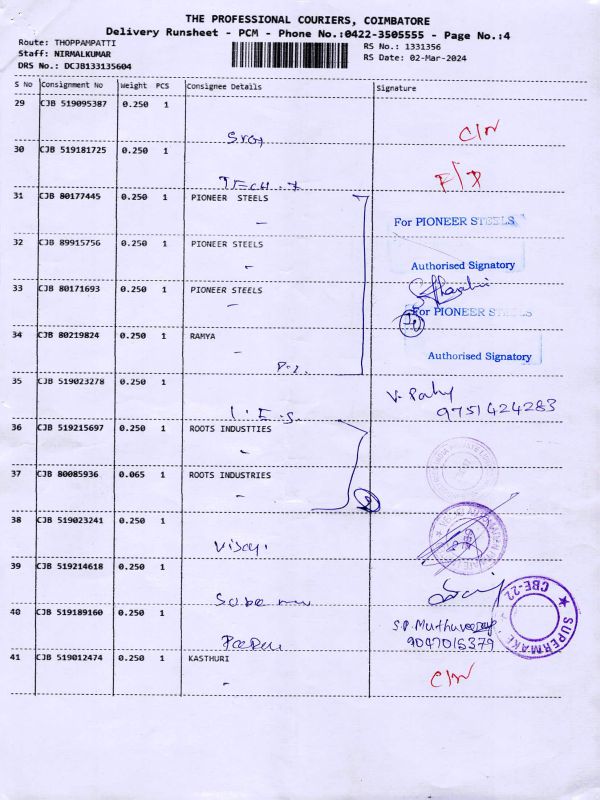 THE PROFESSIONAL COURIERS, COIMBATORE
Delivery Runsheet - PCM - Phone No.:0422-3505555 - Page No.:4
Route: THOPPAMPATTI
Staff: NIRMALKUMAR
DRS No.: DCJB133135604
RS No.: 1331356
RS Date: 02-Mar-2024
S No Consignment No Weight PCS Consignee Details Signature
29 CJB 519095387 0.250 1
C/N
30 CJB 519181725 0.250 1
F/D
31 CJB 80177445 0.250 1 PIONEER STEELS
-
For PIONEER STEELS
32 CJB 89915756 0.250 1 PIONEER STEELS
-
Authorised Signatory
33 CJB 80171693 0.250 1 PIONEER STEELS
-
For PIONEER STEELS
34 CJB 80219824 0.250 1 RAMYA
-
Authorised Signatory
35 CJB 519023278 0.250 1
9751424283
I.E.S.
36 CJB 519215697 0.250 1 ROOTS INDUSTTIES
-
37 CJB 80085936 0.065 1 ROOTS INDUSTRIES
-
38 CJB 519023241 0.250 1
39 CJB 519214618 0.250 1
CBE-22
40 CJB 519189160 0.250 1
9047015379
41 CJB 519012474 0.250 1 KASTHURI
-
C/N